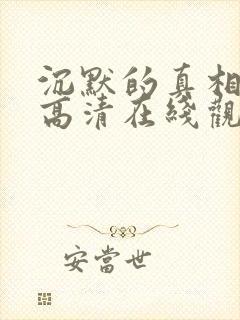 沉默的真相
高清在綫觀
安當世